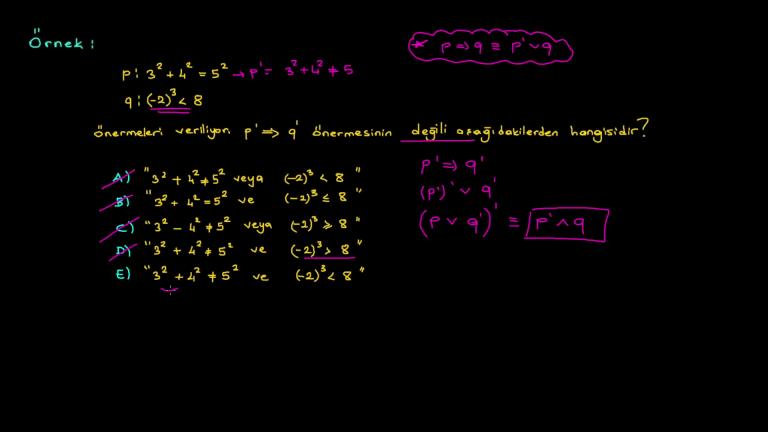 Örnek:
* p ⇒ q ≡ p' ∨ q
p: 3² + 4² = 5² → p' = 3² + 4² ≠ 5
q: (-2)³ < 8
önermeleri veriliyor. p' ⇒ q' önermesinin değili aşağıdakilerden hangisidir?
A) "3² + 4² ≠ 5² veya (-2)³ < 8"
B) "3² + 4² = 5² ve (-2)³ ≤ 8"
C) "3² - 4² ≠ 5² veya (-2)³ ⩾ 8"
D) "3² + 4² ≠ 5² ve (-2)³ > 8"
E) "3² + 4² ≠ 5² ve (-2)³ < 8"
p' ⇒ q'
(p')' ∨ q'
(p ∨ q')' ≡ p' ∧ q